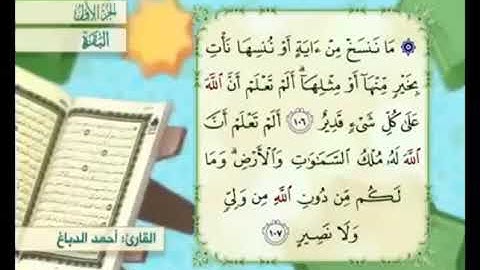 الجزء الأول
البقرة
۞ مَا نَنسَخْ مِنْ ءَايَةٍ أَوْ نُنسِهَا نَأْتِ
بِخَيْرٍ مِّنْهَآ أَوْ مِثْلِهَآ ۗ أَلَمْ تَعْلَمْ أَنَّ ٱللَّهَ
عَلَىٰ كُلِّ شَىْءٍ قَدِيرٌ ١٠٦ أَلَمْ تَعْلَمْ أَنَّ
ٱللَّهَ لَهُۥ مُلْكُ ٱلسَّمَـٰوَٰتِ وَٱلْأَرْضِ ۗ وَمَا
لَكُم مِّن دُونِ ٱللَّهِ مِن وَلِىٍّ
وَلَا نَصِيرٍ ١٠٧
القارئ: أحمد الدباغ